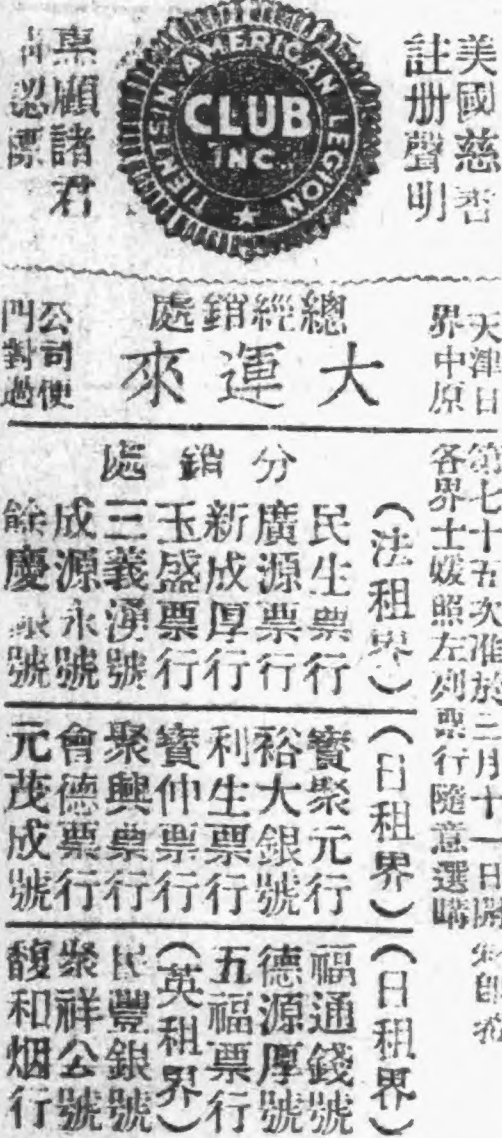 美國慈善
註册聲明
TIENTSIN AMERICAN LEGION
CLUB
INC.
惠顧諸君
認標
天津日
界中原
總經銷處
大運來
公司便
門對過
第七十五次准於三月十一日開
各界士媛照左列票行隨意選購
分銷處
（法租界）
民生票行
廣源票行
新成厚行
玉盛票行
三義湧號
成源永號
餘慶號
（日租界）
寶聚元行
裕大銀號
利生票行
寶仲票行
聚興票行
會德票行
元茂成號
（日租界）
福通錢號
德源厚號
五福票行
（英租界）
民豐銀號
聚祥公號
馥和烟行